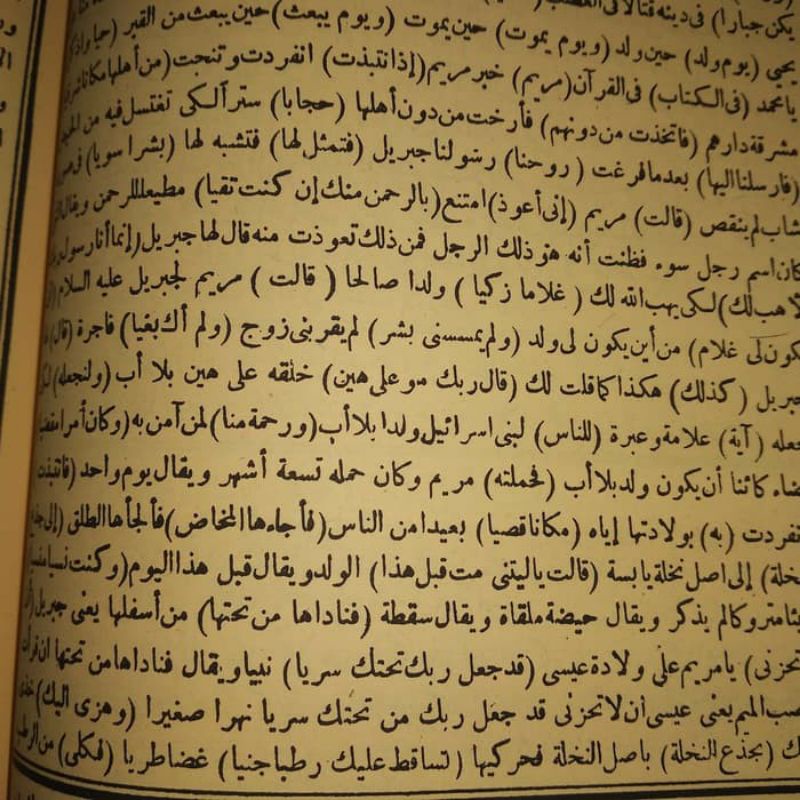 يكن جبارا) فى دينه قتالا فى الغضب
يحيى (يوم ولد) حين ولد (ويوم يموت) حين يموت (ويوم يبعث) حين يبعث من القبر (حيا واذ
يا محمد (فى الكتاب) فى القرآن (مريم) خبر مريم (إذ انتبذت) انفردت وتنحت (من أهلها مكانا
مشرقة دارهم (فاتخذت من دونهم) فأرخت من دون أهلها (حجابا) سترا لكى تغتسل فيه من
(فارسلنا اليها) بعد ما فرغت (روحنا) رسولنا جبريل (فتمثل لها) فتشبه لها (بشرا سويا)
شاب لم ينقص (قالت) مريم (إنى أعوذ) امتنع (بالرحمن منك إن كنت تقيا) مطيعا للرحمن ويقال
كان اسم رجل سوء فظنت أنه هو ذلك الرجل فمن ذلك تعوذت منه قال لها جبريل (إنما أنا رسول
لأهب لك) لكى يهب الله لك (غلاما زكيا) ولدا صالحا (قالت) مريم لجبريل عليه السلام
يكون لى غلام) من أين يكون لى ولد (ولم يمسسنى بشر) لم يقربنى زوج (ولم أك بغيا) فاجرة (قال)
جبريل (كذلك) هكذا كما قلت لك (قال ربك هو على هين) خلقه على هين بلا أب (ولنجعله)
نجعله (آية) علامة وعبرة (للناس) لبنى اسرائيل ولدا بلا أب (ورحمة منا) لمن آمن به (وكان أمرا مقضيا
قضاء كائنا أن يكون ولد بلا أب (فحملته) مريم وكان حمله تسعة أشهر ويقال يوم واحد (فانتبذت
انفردت (به) بولادتها إياه (مكانا قصيا) بعيدا من الناس (فأجاءها المخاض) فألجأها الطلق (إلى جذع
النخلة) إلى اصل نخلة يابسة (قالت يا ليتنى مت قبل هذا) الولد ويقال قبل هذا اليوم (وكنت نسيا منسيا
شيئا متروكا لم يذكر ويقال حيضة ملقاة ويقال سقطة (فناداها من تحتها) من أسفلها يعنى جبريل
تحزنى) يا مريم على ولادة عيسى (قد جعل ربك تحتك سريا) نبيا ويقال فناداها من تحتها ان قرأت
بنصب الميم يعنى عيسى أن لا تحزنى قد جعل ربك من تحتك سريا نهرا صغيرا (وهزى اليك)
(بجذع النخلة) باصل النخلة فحركيها (تساقط عليك رطبا جنيا) غضا طريا (فكلى) من الرطب